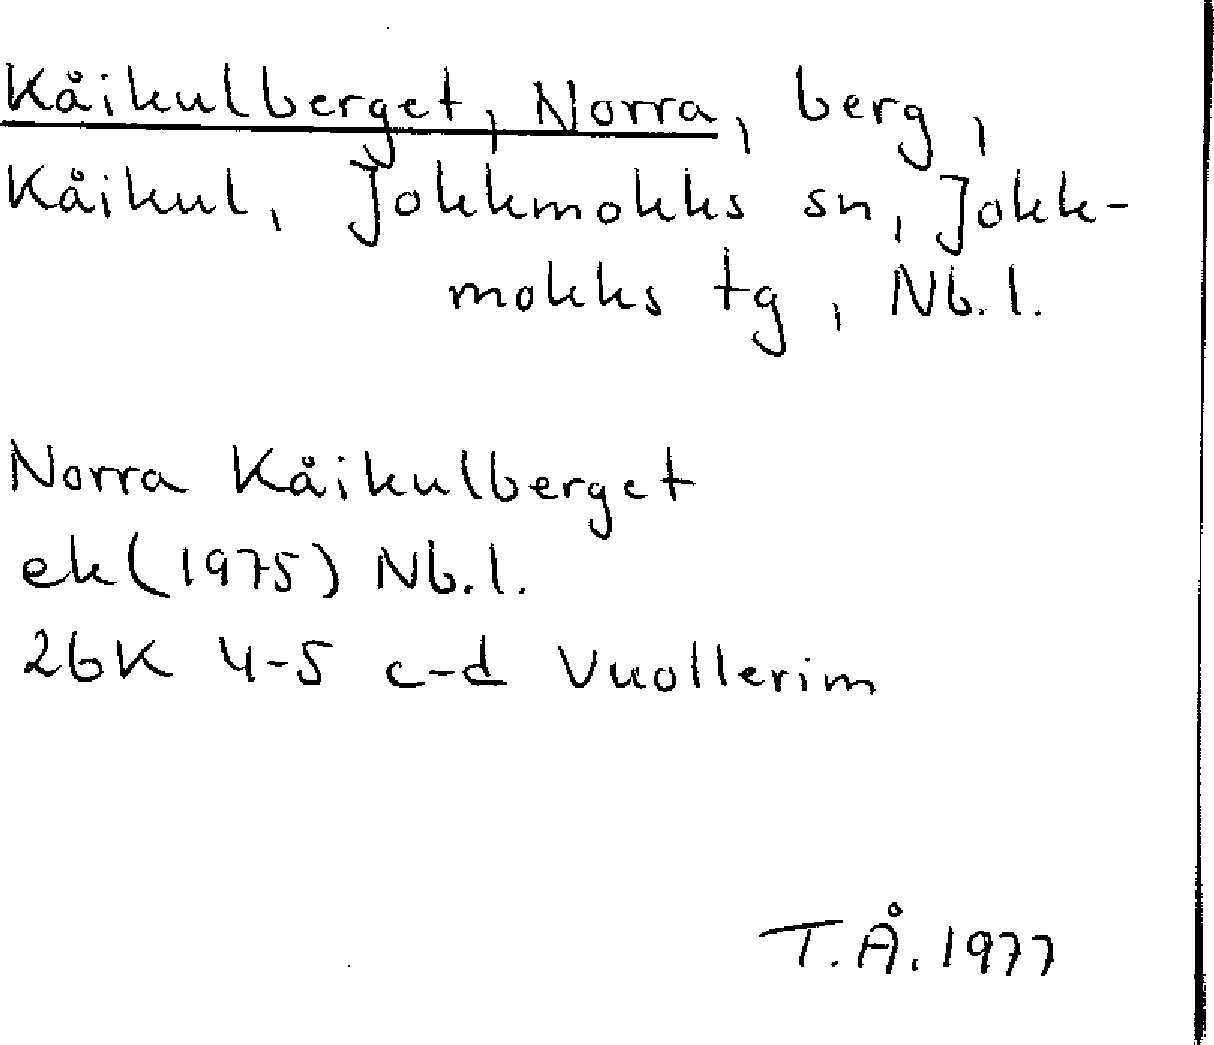 Kåikulberget, Norra, berg,
Kåikul, Jokkmokks sn, Jokk-
mokks tg, Nb.l.
Norra Kåikulberget
ek (1975) Nb.l.
26K 4-5 c-d Vuollerim
T.Å. 1977